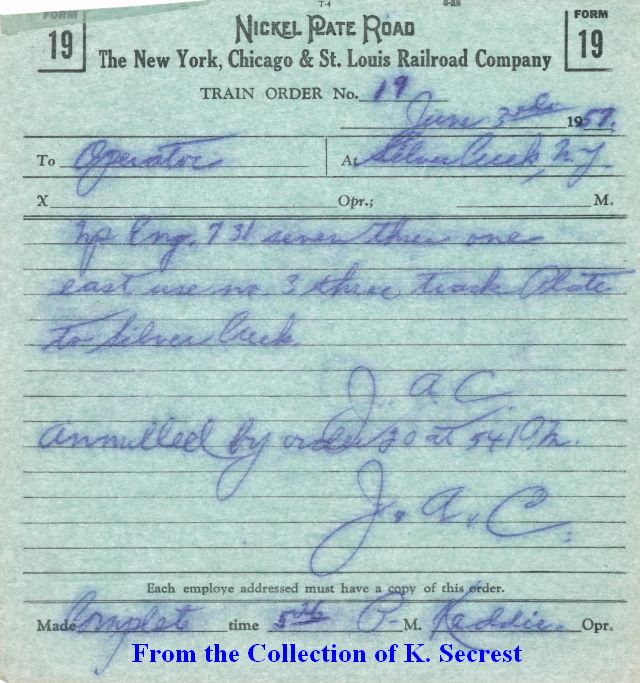 T-4
FORM 19
NICKEL PLATE ROAD
FORM 19
The New York, Chicago & St. Louis Railroad Company
TRAIN ORDER No. 19
June 3rd 1957.
To Operator At Silver Creek, N.Y.
X Opr.; M.
np Eng. 731 seven three one
east use no. 3 three track Plate
to Silver Creek
J. A. C.
annulled by order 20 at 541 Pm.
J. A. C.
Each employe addressed must have a copy of this order.
Made Complet time 526 P. M. Keddie. Opr.
From the Collection of K. Secrest